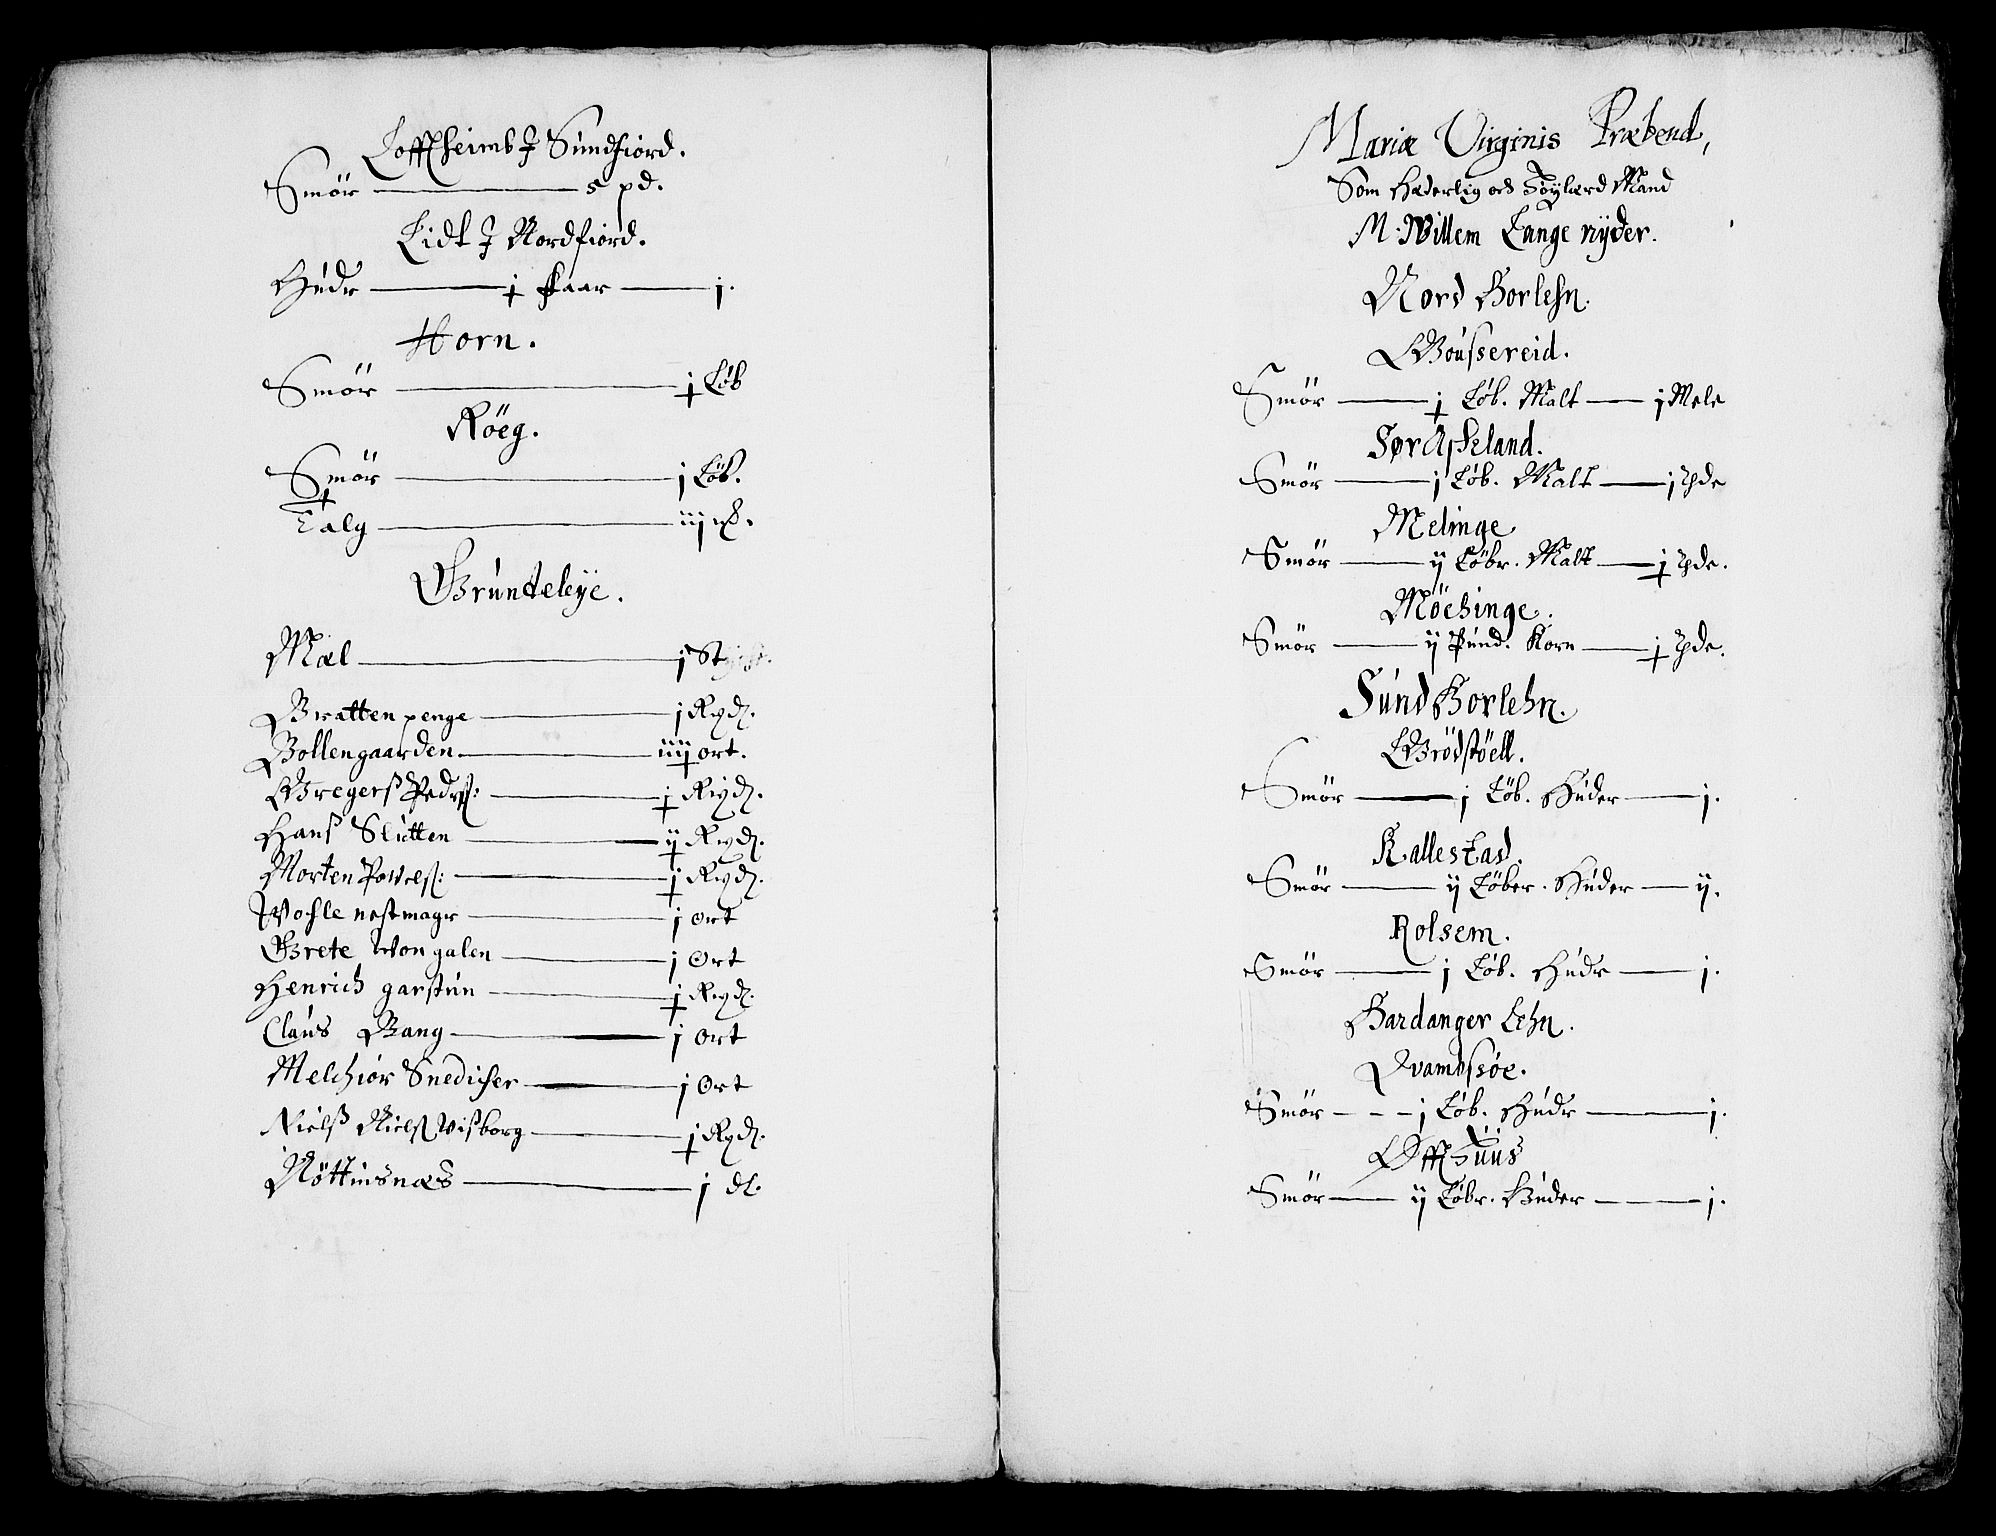 Lofftheimb J Sundfiord.
Smör 5 pd.
Lidt J Nordfiord.
Hudr j faar j.
Horn.
Smör j Löb
Röeg.
Smör j Löb.
Talg iij
Grundeleye.
Mæl j
Bratten penge j Rixd.
Bollengaarden iiij ort.
Gregerß Pedrß: j Rixd.
Hanß Slutten ij Rixd.
Morten Powelß: j Rixd.
Wohle nestmagr j ort
Grete Won galen j Ort
Henrich garstun j Rixd.
Claus Bang j ort
Melchior Snedicher j Ort
Nielß Nielß Wisborg j Rixd.
Nöttinsnæs j dl.
Mariæ Virginis Præbend,
Som Hæderlig och Höylærd Mand
M. Willem Lange nyder.
Nord Horlehn.
Goussereid.
Smör j Löb. Malt j Mele
Sör Asseland.
Smör j Löb. Malt j
Melinge
Smör ij Löbr. Malt j
Möchinge.
Smör ij Pund. Korn j
Sund Horlehn.
Grödstöell.
Smör j Löb. Huder j.
Kallestad.
Smör ij Löber. Huder ij.
Rolsem.
Smör j Löb. Hudr j.
Hardanger Lehn.
Qvambsöe.
Smör j Löb. Hudr j.
Offthuus
Smör ij Löbr. Huder j.